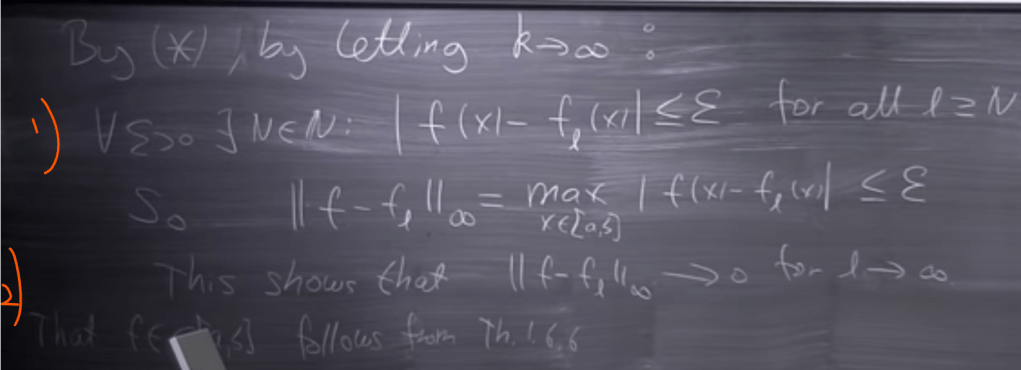 By (*), by letting k→∞ :
1) ∀ε>0 ∃N∈ℕ: |f(x) - f_l(x)| ≤ ε for all l ≥ N
So ‖f - f_l‖_∞ = max_{x∈[a,b]} |f(x) - f_l(x)| ≤ ε
This shows that ‖f - f_l‖_∞ → 0 for l → ∞
2)
That f∈ ,b] follows from Th. 1.6.6